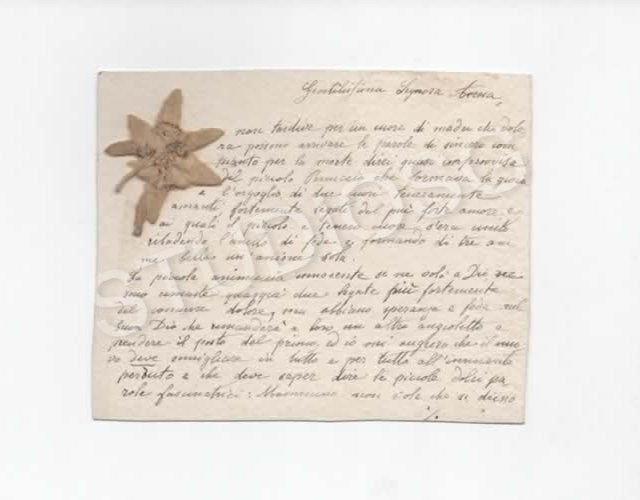 Gentilissima Signora Anna,
non tardive per un cuore di madre che dolo
ra possono arrivare le parole di sincero com
pianto per la morte direi quasi improvvisa
del piccolo che formava la gioia
e l'orgoglio di due cuori teneramente
amanti fortemente legati dal più forte amore e
ai quali il piccolo e tenero cuor s'era unito
ribadendo l'anello di fede e formando di tre ani
me belle un'anima sola.
La piccola animuccia innocente se ne volò a Dio ne
son rimaste quaggiù due legate più fortemente
dal comune dolore, ma abbiano speranza e fede nel
buon Dio che rimanderà a loro un altro angioletto a
prendere il posto del primo, ed io son auguro che il nuo
vo deve somigliare in tutto e per tutto all'innocente
perduto e che deve saper dire le piccole dolci pa
role fascinatrici: Mammina non vole che si dicono
./.
STUDIO